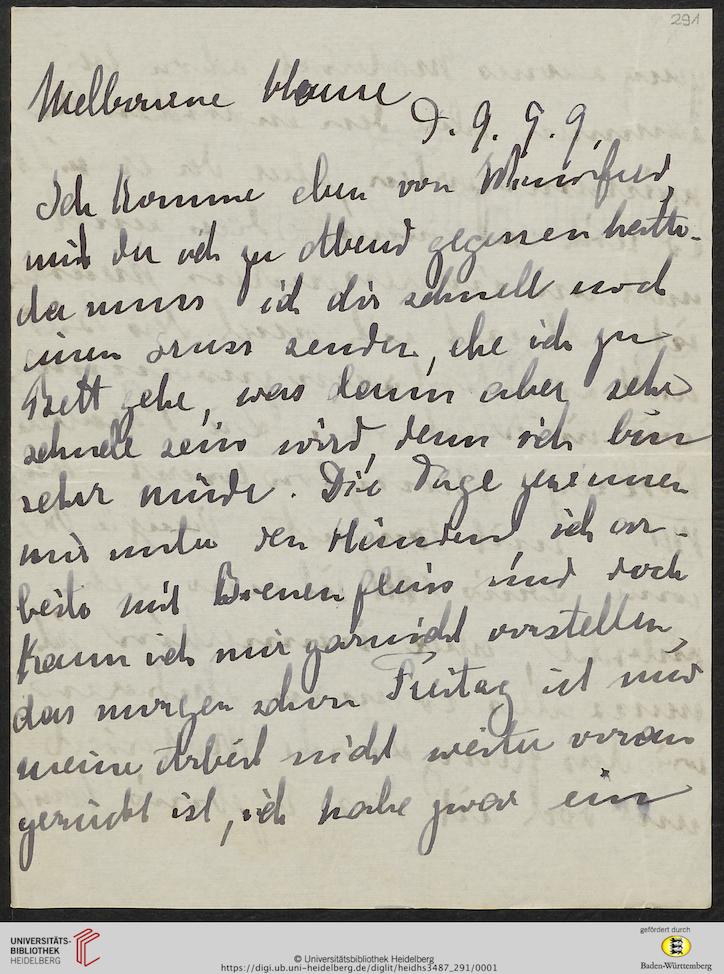 291
Melbourne House
D. 9. 9. 9.
Ich komme eben von Winnifred,
mit der ich zu Abend gegessen hatte.
da muss ich dir schnell noch
einen Gruss senden, ehe ich zu
Bett gehe, was dann aber sehr
schnell sein wird, denn ich bin
sehr müde. Die Tage zerrinnen
mir unter den Händen, ich ar-
beite mit Bienenfleiss und doch
kann ich mir garnicht vorstellen,
das morgen schon Freitag ist und
meine Arbeit nicht weiter voran
gerückt ist, ich habe zwar ein
UNIVERSITÄTS-
BIBLIOTHEK
HEIDELBERG
© Universitätsbibliothek Heidelberg
https://digi.ub.uni-heidelberg.de/diglit/heidhs3487_291/0001
gefördert durch
Baden-Württemberg